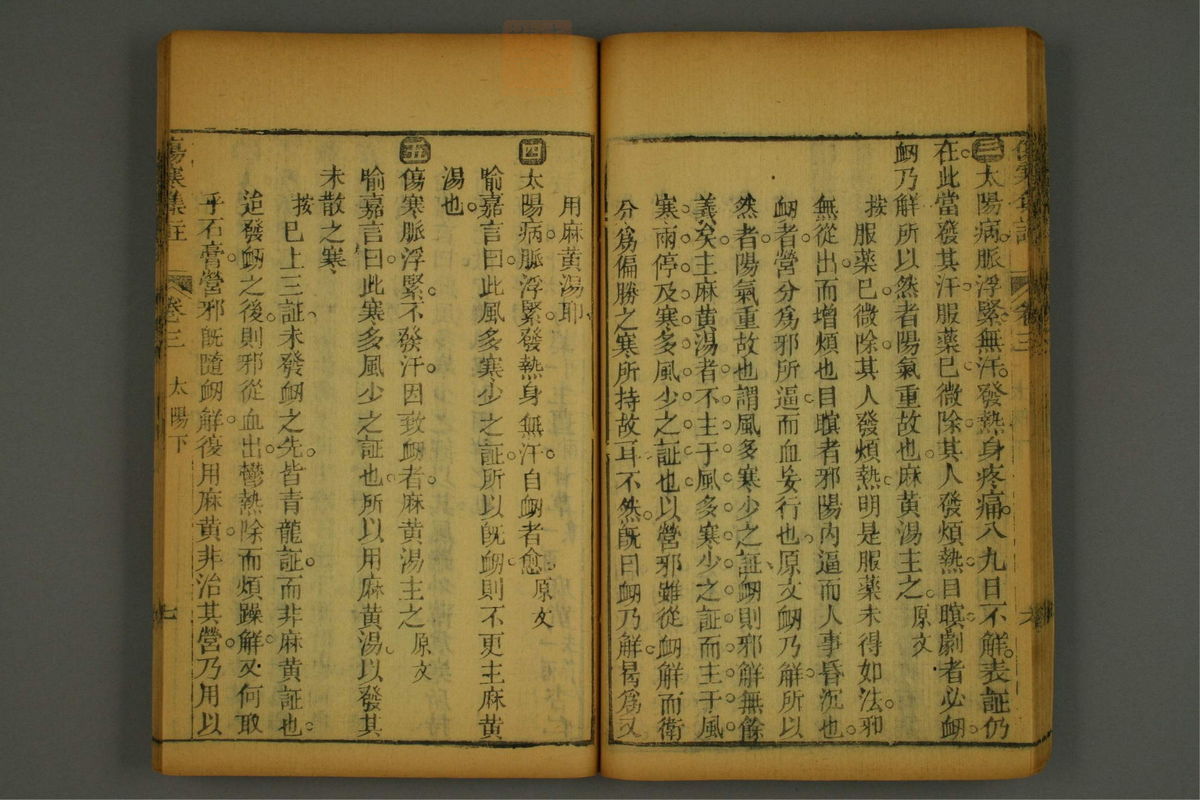 傷寒集註 卷三
三 太陽病脈浮緊無汗發熱身疼痛八九日不解表証仍
在此當發其汗服藥已微除其人發煩熱目瞑劇者必衂
衂乃解所以然者陽氣重故也麻黃湯主之 原文
按服藥已微除其人發煩熱明是服藥未得如法邪
無從出而增煩也目瞑者邪陽內逼而人事昏沉也
衂者營分爲邪所逼而血妄行也原文衂乃解所以
然者陽氣重故也謂風多寒少之証衂則邪解無餘
義矣主麻黃湯者不主于風多寒少之証而主于風
寒兩停及寒多風少之証也以營邪雖從衂解而衛
分爲偏勝之寒所持故耳不然旣曰衂乃解曷爲又
用麻黃湯耶
四 太陽病脈浮緊發熱身無汗自衂者愈 原文
喻嘉言曰此風多寒少之証所以旣衂則不更主麻黃
湯也
五 傷寒脈浮緊不發汗因致衂者麻黃湯主之 原文
喻嘉言曰此寒多風少之証也所以用麻黃湯以發其
未散之寒
按已上三証未發衂之先皆青龍証而非麻黃証也
迨發衂之後則邪從血出鬱熱除而煩躁解又何取
乎石膏營邪旣隨衂解復用麻黃非治其營乃用以
傷寒集註 卷三 太陽下 七